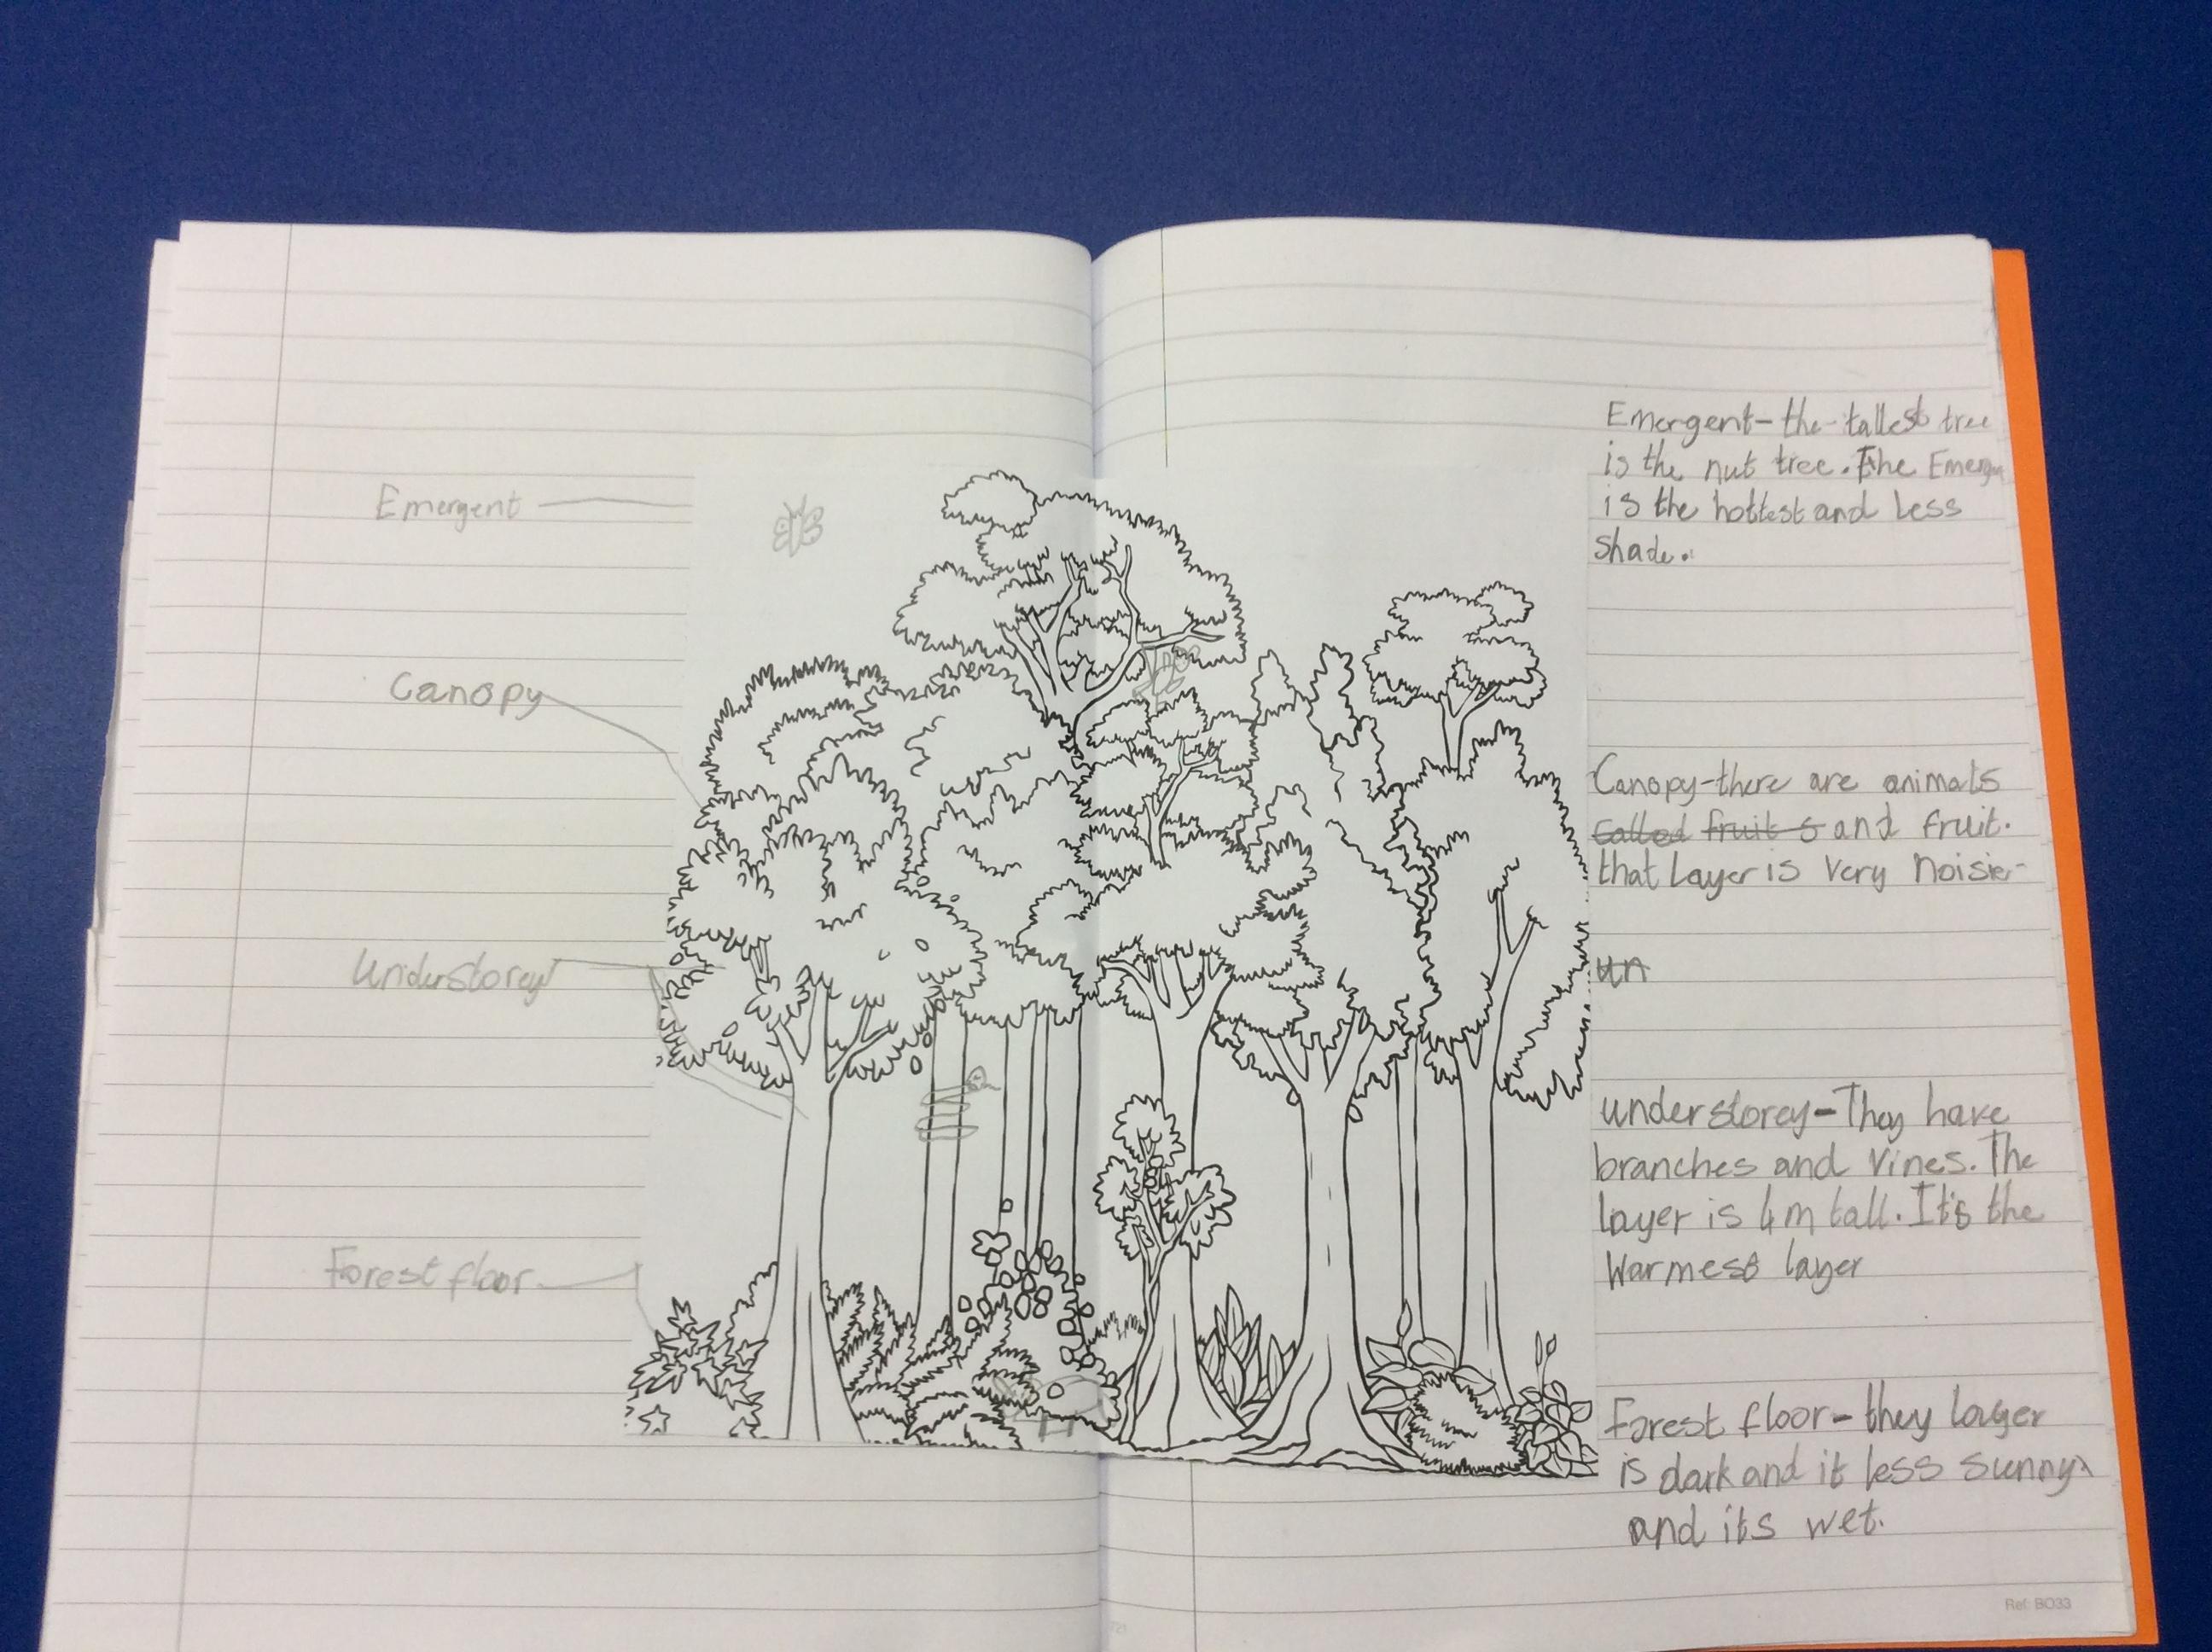 Emergent
Canopy
Understorey
Forest floor
Emergent-the tallest tree
is the nut tree. The Emerge
is the hottest and less
shade.
Canopy-there are animals
called fruit s and fruit.
that Layer is very noisie
un
understorey-They have
branches and vines. The
layer is 4m tall. It's the
warmest layer
Forest floor-they layer
is dark and it less sunny
and its wet.
Ref: BO33